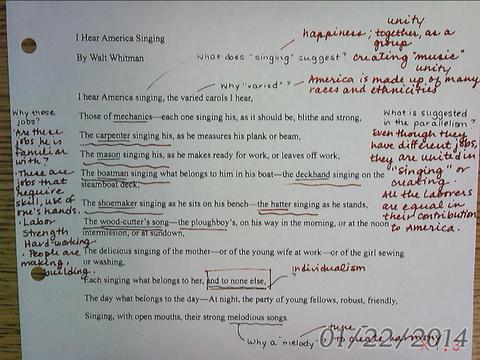 unity
happiness; together, as a
group
I Hear America Singing
By Walt Whitman
What does "singing" suggest? creating "music"
unity
Why "varied"? America is made up of many
races and ethnicities
I hear America singing, the varied carols I hear,
Those of mechanics—each one singing his, as it should be, blithe and strong,
The carpenter singing his, as he measures his plank or beam,
The mason singing his, as he makes ready for work, or leaves off work,
The boatman singing what belongs to him in his boat—the deckhand singing on the
steamboat deck,
The shoemaker singing as he sits on his bench—the hatter singing as he stands,
The wood-cutter's song—the ploughboy's, on his way in the morning, or at the noon
intermission, or at sundown,
The delicious singing of the mother—or of the young wife at work—or of the girl sewing
or washing,
Each singing what belongs to her, and to none else,
The day what belongs to the day—At night, the party of young fellows, robust, friendly,
Singing, with open mouths, their strong melodious songs.
Why these
jobs?
Are these
jobs he is
familiar
with?
These are
jobs that
require
skill, use of
one's hands.
Labor
Strength
Hard-working
People are
making,
building.
What is suggested
in the parallelism?
Even though they
have different jobs,
they are united in
"singing" or
creating.
All the laborers
are equal in
their contribution
to America.
individualism
?
tune
Why a "melody"
to create harmony
01/22/2014